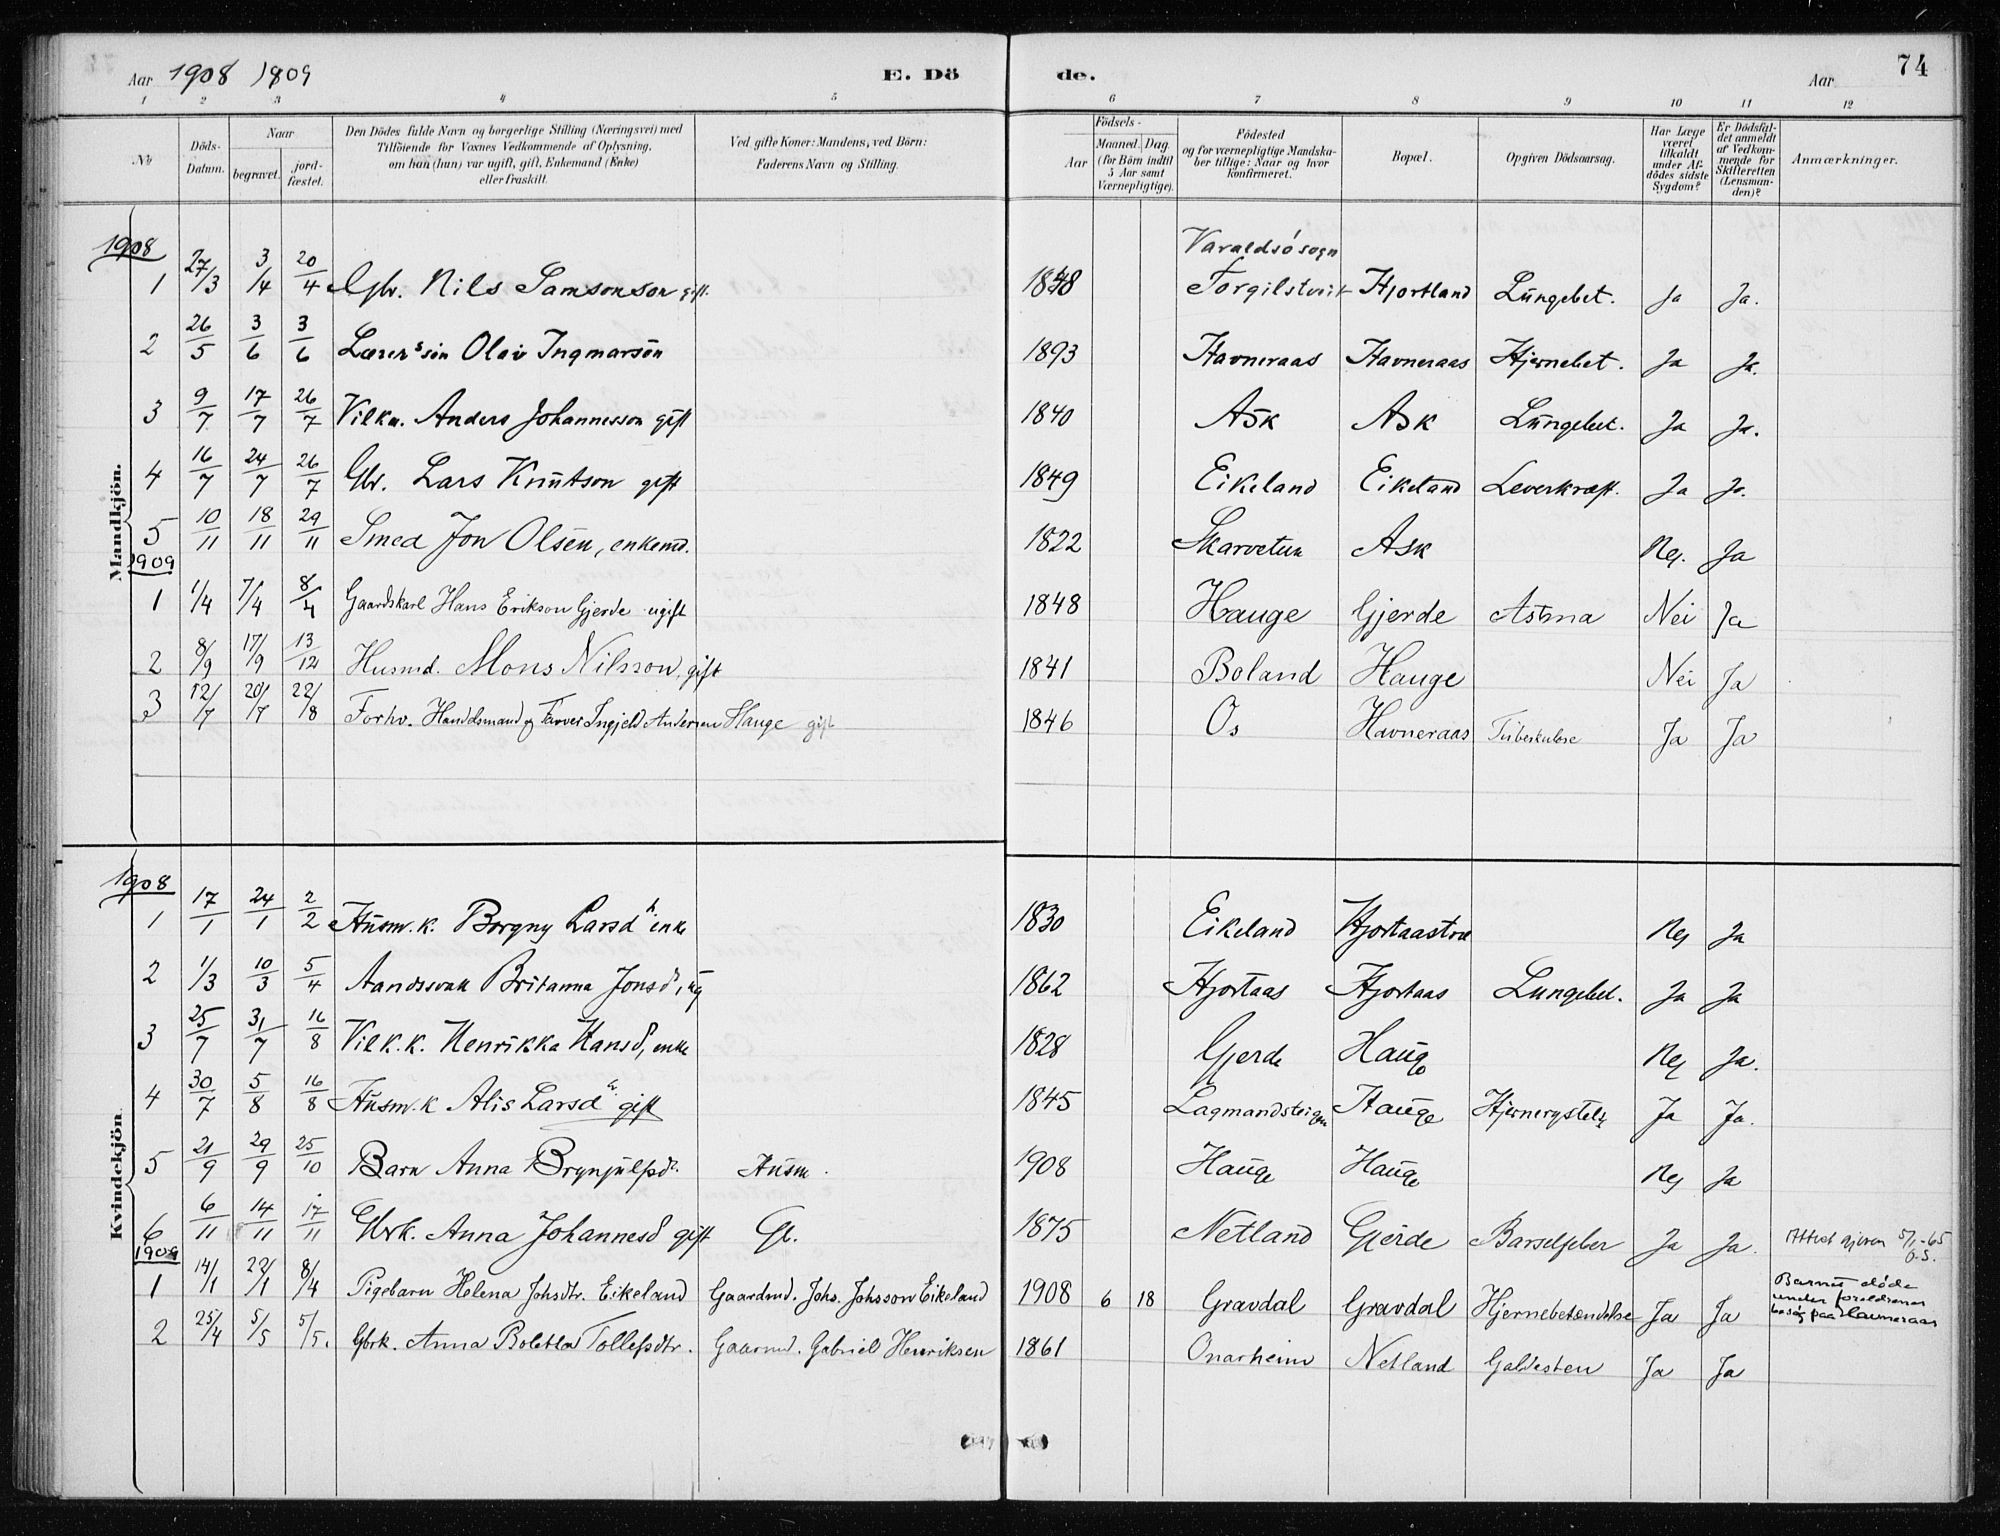 74
Aar 1908 1809
E. Dö de.
Aar
1 2 3 4 5 6 7 8 9 10 11 12
No
Döds-Datum.
Naar
begravet.
jord-fæstet.
Den Dödes fulde Navn og borgerlige Stilling (Næringsvei) med
Tilföiende for Voxnes Vedkommende af Oplysning,
om han (hun) var ugift, gift, Enkemand (Enke)
eller fraskilt.
Ved gifte Koner: Mandens, ved Börn:
Faderens Navn og Stilling.
Födsels-
Aar
Maaned. Dag.
(for Börn indtil
5 Aar samt
Værnepligtige).
Födested
og for værnepligtige Mandska-
ber tillige: Naar og hvor
konfirmeret.
Bopæl.
Opgiven Dödsaarsag.
Har Læge
været
tilkaldt
under Af-
dödes sidste
Sygdom?
Er Dödsfal-
det anmeldt
af Vedkom-
mende for
Skifteretten
(Lensman-
den)?
Anmærkninger.
Mandkjön.
1908
Varaldsö sogn
1 27/3 3/4 20/4 Gbr. Nils Samsonson gift. 1848 Hjortland Lungebet. Ja Ja.
2 26/5 3/6 3/6 Lærerssön Olav Ingmarsön 1893 Havneraas Havneraas Hjernebet. Ja Ja.
3 9/7 17/7 26/7 Vilkm. Anders Johannesson gift 1840 Ask Ask Lungebet. Ja Ja.
4 16/7 24/7 26/7 Gbr. Lars Knutson gift 1849 Eikeland Eikeland Leverkræft. Ja Ja.
5 10/11 18/11 29/11 Smed Jon Olsen, enkemd. 1822 Skarvetun Ask Nej. Ja
1909
1 1/4 7/4 8/4 Gaardskarl Hans Erikson Gjerde ugift 1848 Hauge Gjerde Astma Nei Ja
2 8/9 17/9 13/12 Husmd. Mons Nilsson, gift 1841 Boland Hauge Nei Ja
3 12/7 20/7 22/8 Forhv. Handelsmand og Farver Ingjeld Andersen Hauge gift 1846 Os Havneraas Tuberkulose Ja Ja
Kvindekjön.
1908
1 17/1 24/1 2/2 Husm. k. Borgny Larsdr enke 1830 Eikeland Nej Ja
2 1/3 10/3 5/4 Aandssvak Britanna Jonsd, ug 1862 Hjortaas Hjortaas Lungebet. Ja Ja
3 25/7 31/7 16/8 Vilk. k. Henrikka Hansd, enke 1828 Gjerde Hauge Nej Ja.
4 30/7 5/8 16/8 Husm. k Alis Larsdr gift 1845 Lagmandsteigen Hauge Ja Ja.
5 21/9 29/9 25/10 Barn Anna Brynjulfsdr. Husm. 1908 Hauge Hauge Nej Ja
6 6/11 14/11 17/11 Gbrk. Anna Johannesd gift G. 1875 Netland Gjerde Barselfeber Ja Ja. Attest 5/1-65
1909
1 14/1 22/1 8/4 Pigebarn Helena Johsdtr. Eikeland Gaardmd. Johs. Johsson Eikeland 1908 6 18 Gravdal Gravdal Hjernebetændelse Ja Ja Barnet döde
under foreldrenes
besög paa Havneraas
2 25/4 5/5 5/5. Gbrk. Anna Boletta Tollefsdtr. Gaarmd. Gabriel Henriksen 1861 Onarheim Netland Galdesten Ja Ja